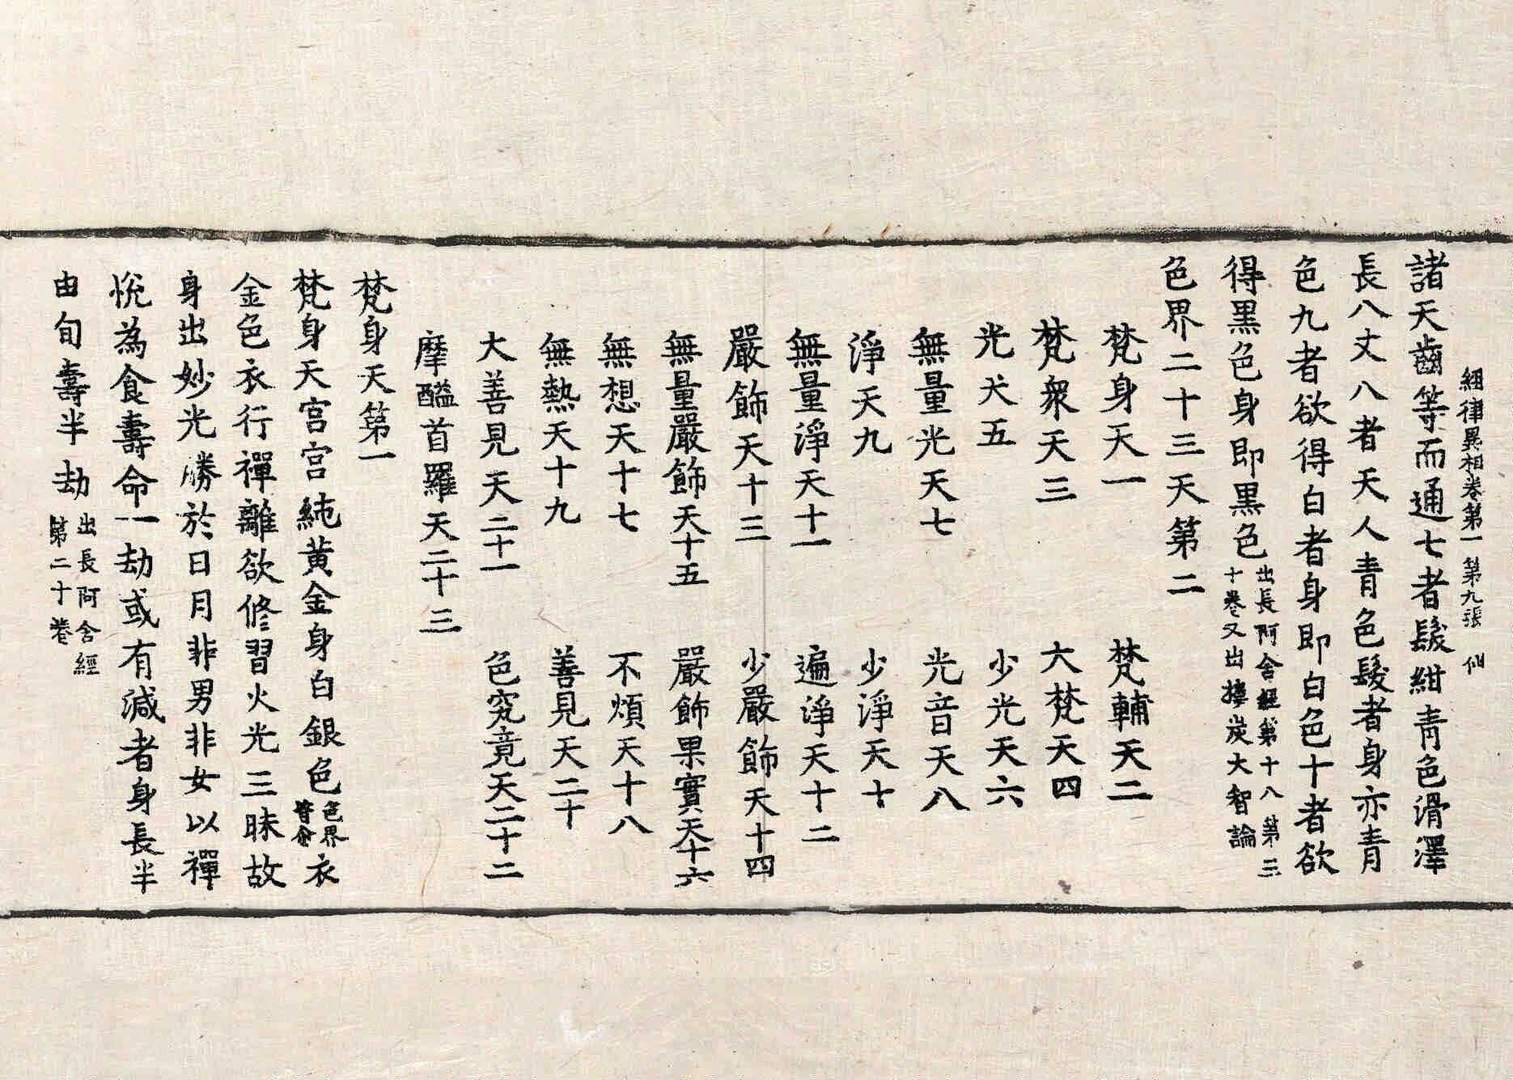 經律異相卷第一 第九張 仙
諸天齒等而通七者髮紺青色滑澤
長八丈八者天人青色髮者身亦青
色九者欲得白者身即白色十者欲
得黑色身即黑色 出長阿含經第十八第三
十卷又出摟炭大智論
色界二十三天第二
梵身天一 梵輔天二
梵衆天三 六梵天四
光天五 少光天六
無量光天七 光音天八
淨天九 少淨天十
無量淨天十一 遍淨天十二
嚴飾天十三 少嚴飾天十四
無量嚴飾天十五 嚴飾果實天十六
無想天十七 不煩天十八
無熱天十九 善見天二十
大善見天二十一 色究竟天二十二
摩醯首羅天二十三
梵身天第一
梵身天宮宮純黃金身白銀色 色界皆爾 衣
金色衣行禪離欲修習火光三昧故
身出妙光勝於日月非男非女以禪
悅為食壽命一劫或有減者身長半
由旬壽半劫 出長阿含經
第二十卷